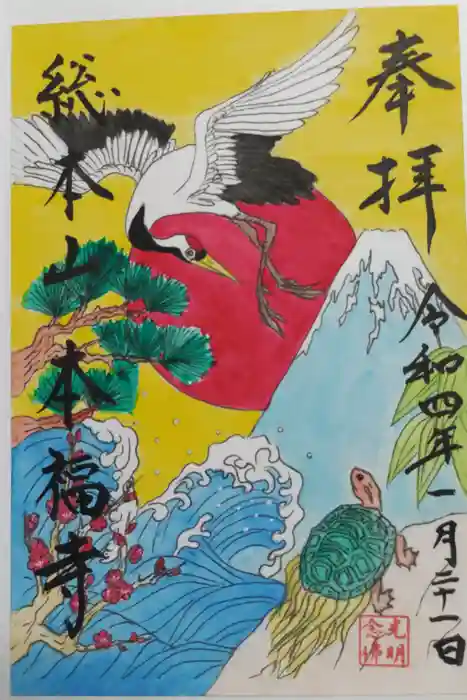 奉拝
令和四年一月二十一日
総本山本福寺
光明
念佛